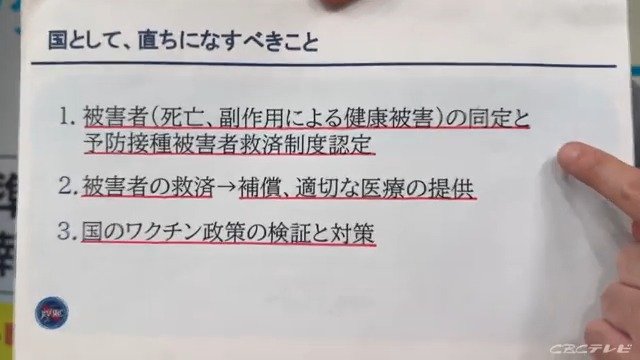 国として、直ちになすべきこと
1. 被害者(死亡、副作用による健康被害)の同定と
予防接種被害者救済制度認定
2. 被害者の救済→補償、適切な医療の提供
3. 国のワクチン政策の検証と対策
CBCテレビ